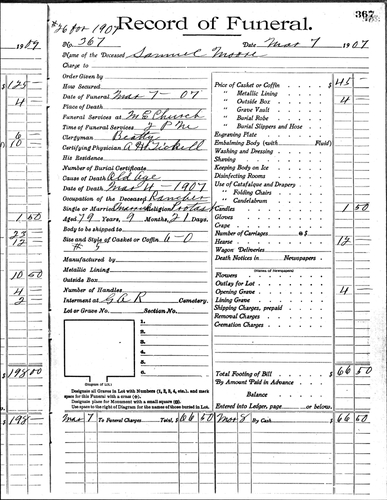 367
#26 for 1907
Record of Funeral.
No. 367
Date Mar 7 1907
Name of the Deceased Samuel Moore
Charge to
Order Given by
How Secured
Date of Funeral Mar 7 - 07
Place of Death
Funeral Services at M E Church
Time of Funeral Services 2 P M
Clergyman Beatty
Certifying Physician A H Tickell
His Residence
Number of Burial Certificate
Cause of Death Old Age
Date of Death Mar 4 - 1907
Occupation of the Deceased Rancher
Single or Married Married Religion Protest
Aged 79 Years, 9 Months, 21 Days
Body to be shipped to
Size and Style of Casket or Coffin 6-0
Manufactured by
Metallic Lining
Outside Box
Number of Handles
Interment at G A R Cemetery.
Lot or Grave No. Section No.
1.
2.
3.
4.
5.
6.
(Diagram of Lot.)
Designate all Graves in Lot with Numbers (1, 2, 3, 4, etc.), and mark
space for this Funeral with a cross (+).
Designate place for Monument with a small square
Use space to the right of Diagram for the names of those buried in Lot.
Price of Casket or Coffin $ 45 -
" Metallic Lining
" Outside Box 4 -
" Grave Vault
" Burial Robe
" Burial Slippers and Hose
Engraving Plate
Embalming Body (with Fluid)
Washing and Dressing
Shaving
Keeping Body on Ice
Disinfecting Rooms
Use of Catafalque and Drapery
" Folding Chairs
" Candelabrum
Candles 1 50
Gloves
Crape
Number of Carriages @ $
Hearse 12
Wagon Deliveries
Death Notices in Newspapers
(Names of Newspapers)
Flowers
Outlay for Lot
Opening Grave 4 -
Lining Grave
Shipping Charges, prepaid
Removal Charges
Cremation Charges
Total Footing of Bill $ 66 50
By Amount Paid in Advance
Balance
Entered into Ledger, page or below.
Mar 7 To Funeral Charges Total $ 66 50 Mar 8 By Cash $ 66 50
1907
$ 125 -
4
6
10
1 50
23
12
10 50
4
2
$ 198 00
$ 198